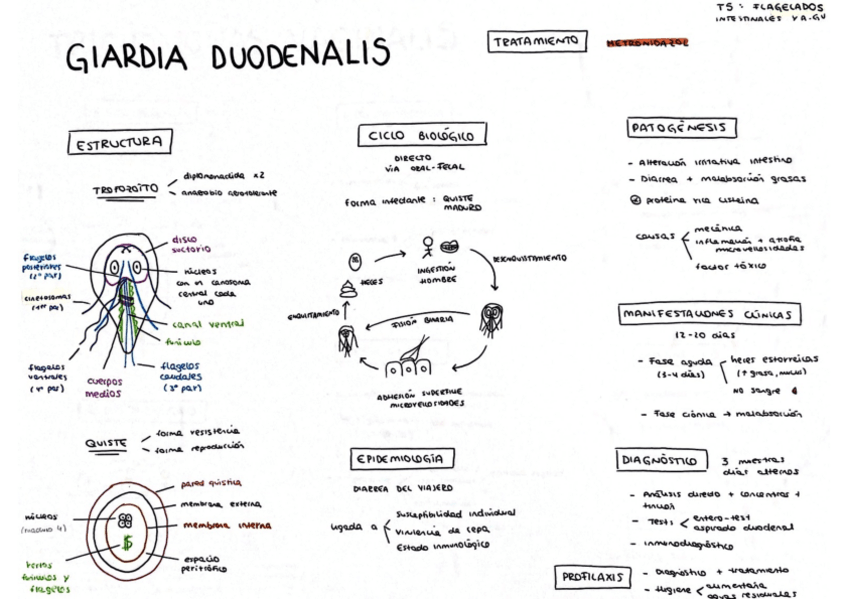 T5: FLAGELADOS
INTESTINALES Y A-GU
GIARDIA DUODENALIS
TRATAMIENTO
METRONIDAZOL
ESTRUCTURA
TROFOZOÍTO
diplomonadida x2
anaerobio aerotolerante
disco
suctorio
flagelos
posteriores
(2º par)
núcleos
con es cariosoma
central cada
uno
cinetosomas
(1er par)
canal ventral
funículo
flagelos
ventrales
(4º par)
cuerpos
medios
flagelos
caudales
(3º par)
QUISTE
forma resistencia
forma reproducción
pared quística
membrana externa
núcleos
(maduro 4)
membrana interna
espacio
peritrófico
restos
funículos y
flagelos
CICLO BIOLÓGICO
DIRECTO
VÍA ORAL-FECAL
forma infectante : QUISTE
MADURO
INGESTIÓN
HOMBRE
DESENQUISTAMIENTO
HECES
ENQUISTAMIENTO
FISIÓN BINARIA
ADHESIÓN SUPERFICIE
MICROVELLOSIDADES
EPIDEMIOLOGÍA
DIARREA DEL VIAJERO
ligada a
Susceptibilidad individual
Virulencia de cepa
Estado inmunológico
PATOGÉNESIS
- Alteración irritativa intestino
- Diarrea + malabsorción grasas
proteína rica cisteína
causas
mecánica
inflamación + atrofia
microvellosidades
factor tóxico
MANIFESTACIONES CLÍNICAS
12-20 días
- Fase aguda
(3-4 días)
heces esteatorreicas
(↑ grasa, mucus)
NO sangre
- Fase crónica → malabsorción
DIAGNÓSTICO
3 muestras
días alternos
- Análisis directo + concentras +
tinción
- Tests
entero-test
aspirado duodenal
- inmunodiagnóstico
PROFILAXIS
- Diagnóstico + tratamiento
- Higiene
alimentaria
aguas residuales